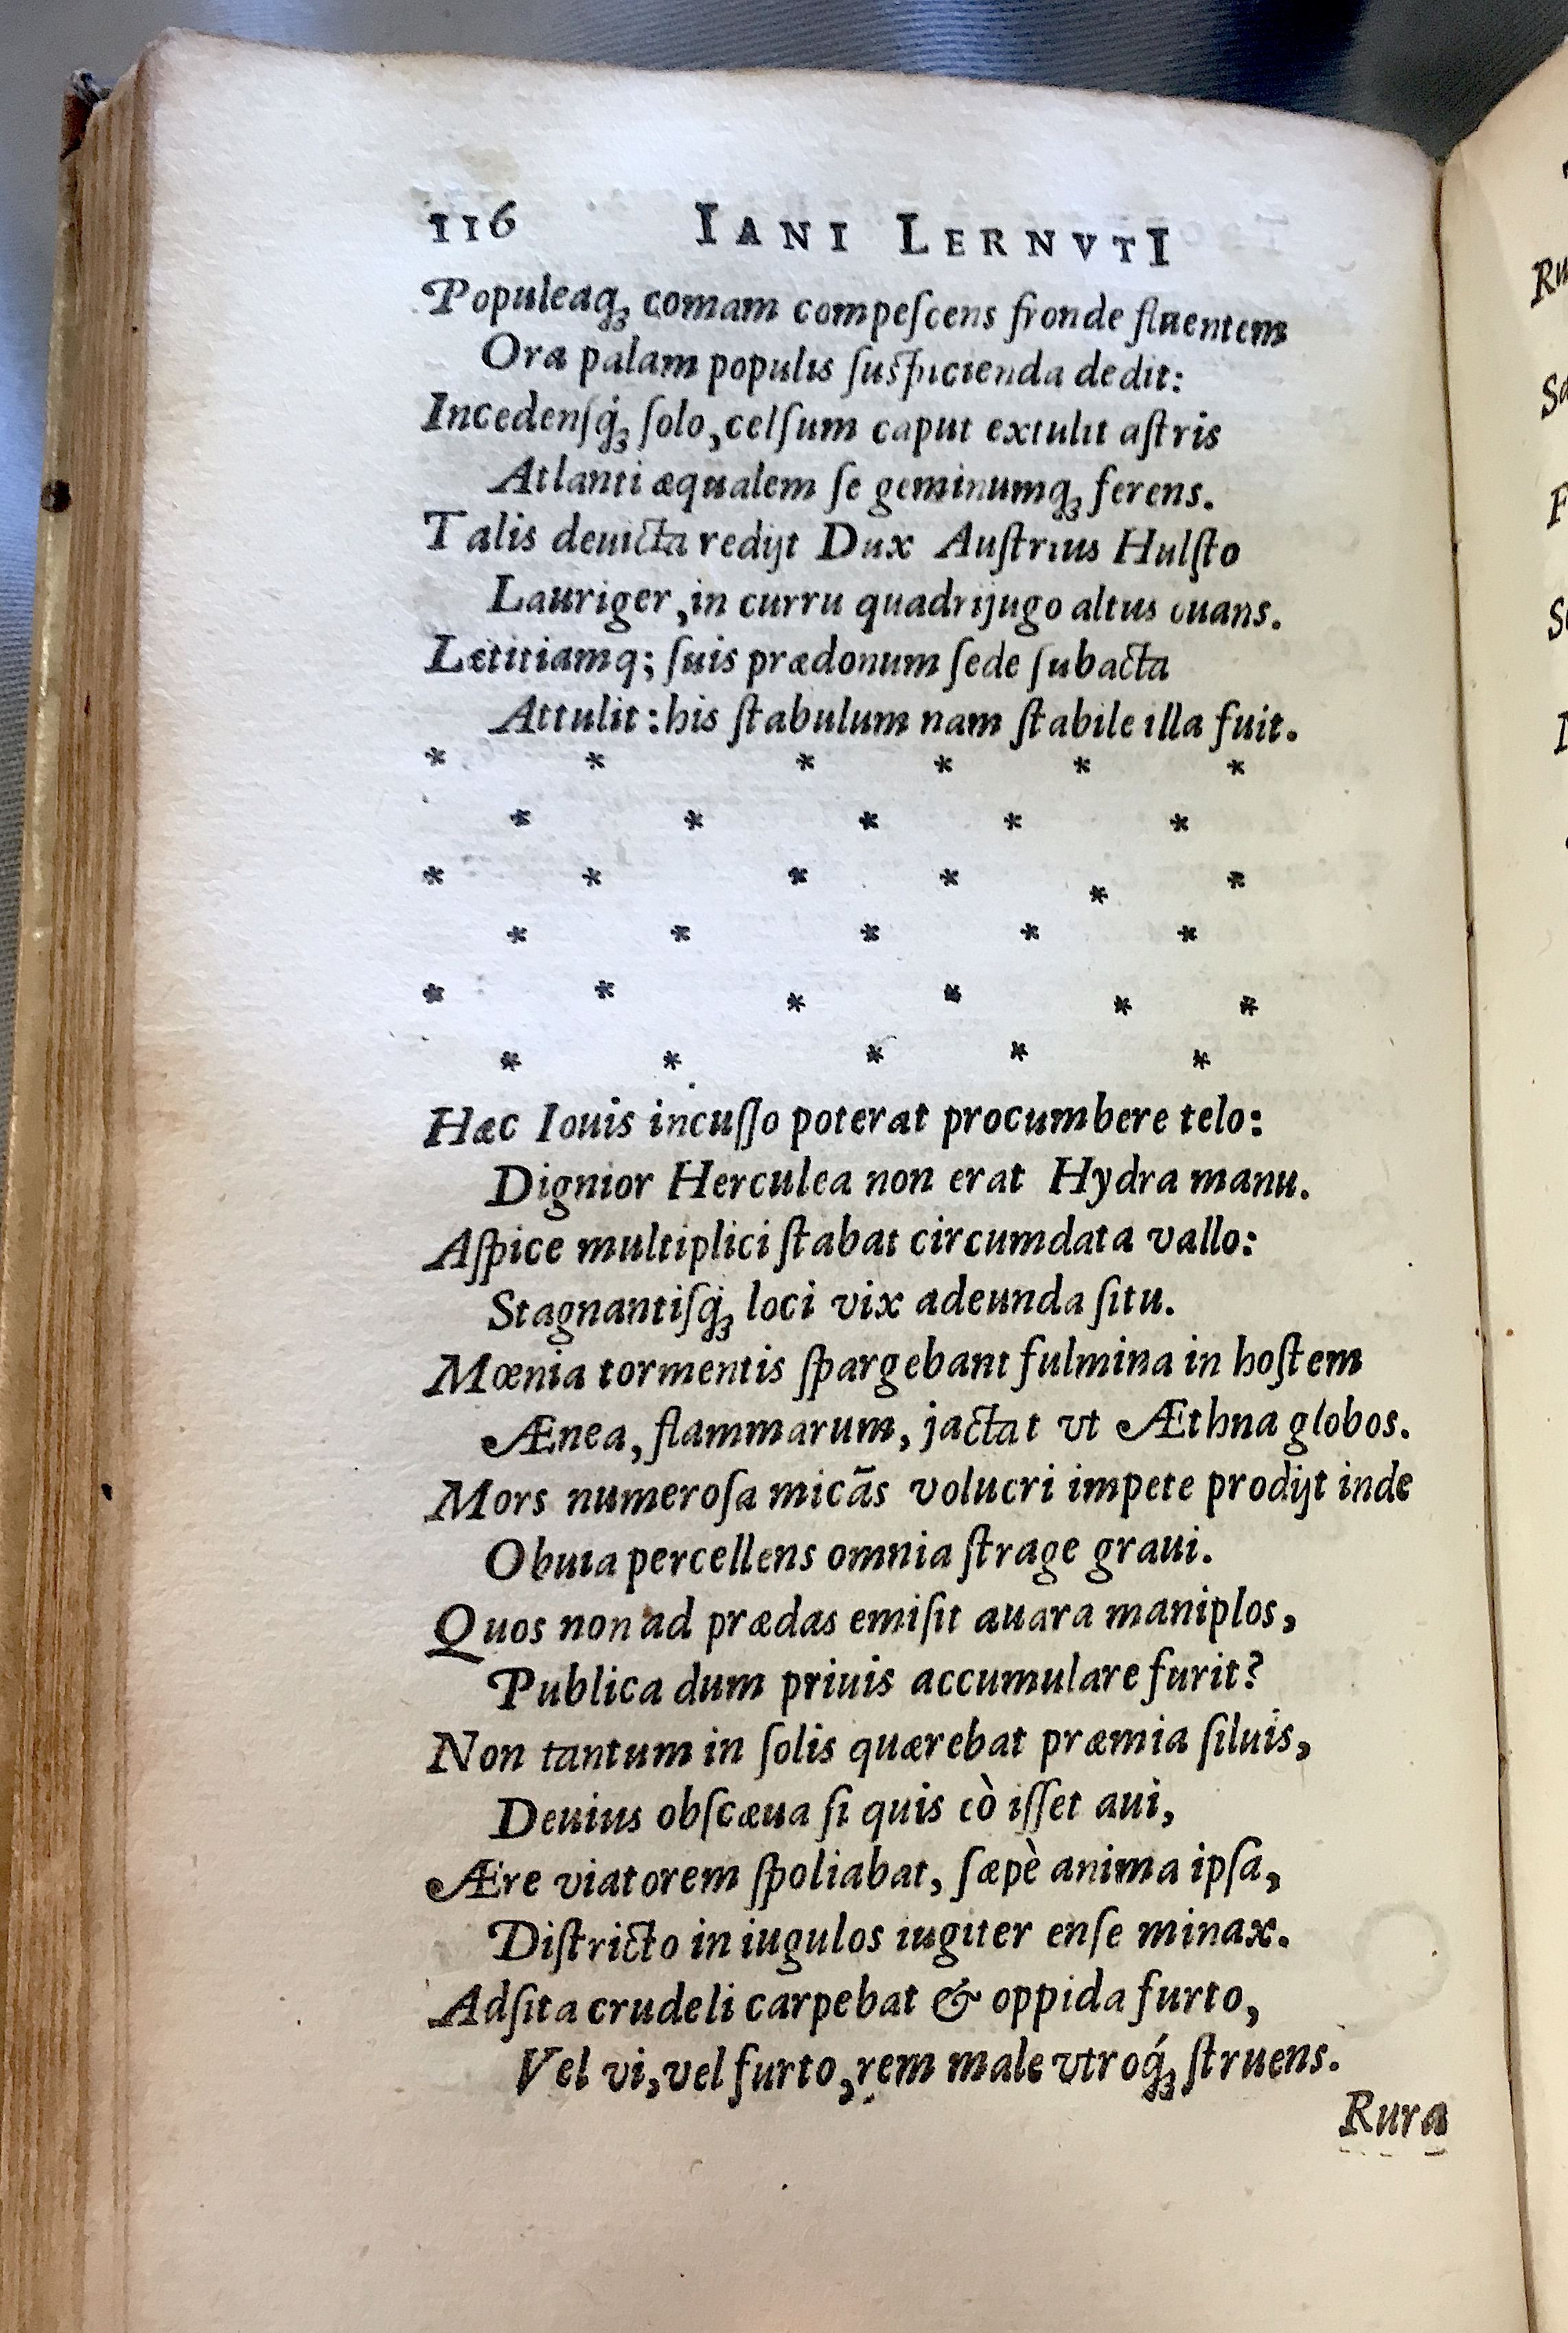 116 IANI LERNVTI
Populeaq́ꝫ comam compeſcens fronde fluentem
Ora palam populis ſuſpicienda dedit:
Incedenſq́ꝫ ſolo, celſum caput extulit aſtris
Atlanti æqualem ſe geminumqꝫ ferens.
Talis deuicta redijt Dux Auſtrius Hulſto
Lauriger, in curru quadrijugo altus ouans.
Lætitiamq; ſuis prædonum ſede ſubacta
Attulit: his ſtabulum nam ſtabile illa fuit.
* * * * * *
* * * * *
* * * * * *
* * * * *
* * * * * *
* * * * *
Hæc Iouis incuſſo poterat procumbere telo:
Dignior Herculea non erat Hydra manu.
Aſpice multiplici ſtabat circumdata vallo:
Stagnantiſq́ꝫ loci vix adeunda ſitu.
Mœnia tormentis ſpargebant fulmina in hoſtem
Ænea, flammarum, jactat vt Æthna globos.
Mors numeroſa micās volucri impete prodijt inde
Obuia percellens omnia ſtrage graui.
Quos non ad prædas emiſit auara maniplos,
Publica dum priuis accumulare furit?
Non tantum in ſolis quærebat præmia ſiluis,
Deuius obſcæua ſi quis eò iſſet aui,
Ære viatorem ſpoliabat, ſæpè anima ipſa,
Diſtricto in iugulos iugiter enſe minax.
Adſita crudeli carpebat & oppida furto,
Vel vi, vel furto, rem male vtroq́ꝫ ſtruens.
Rura